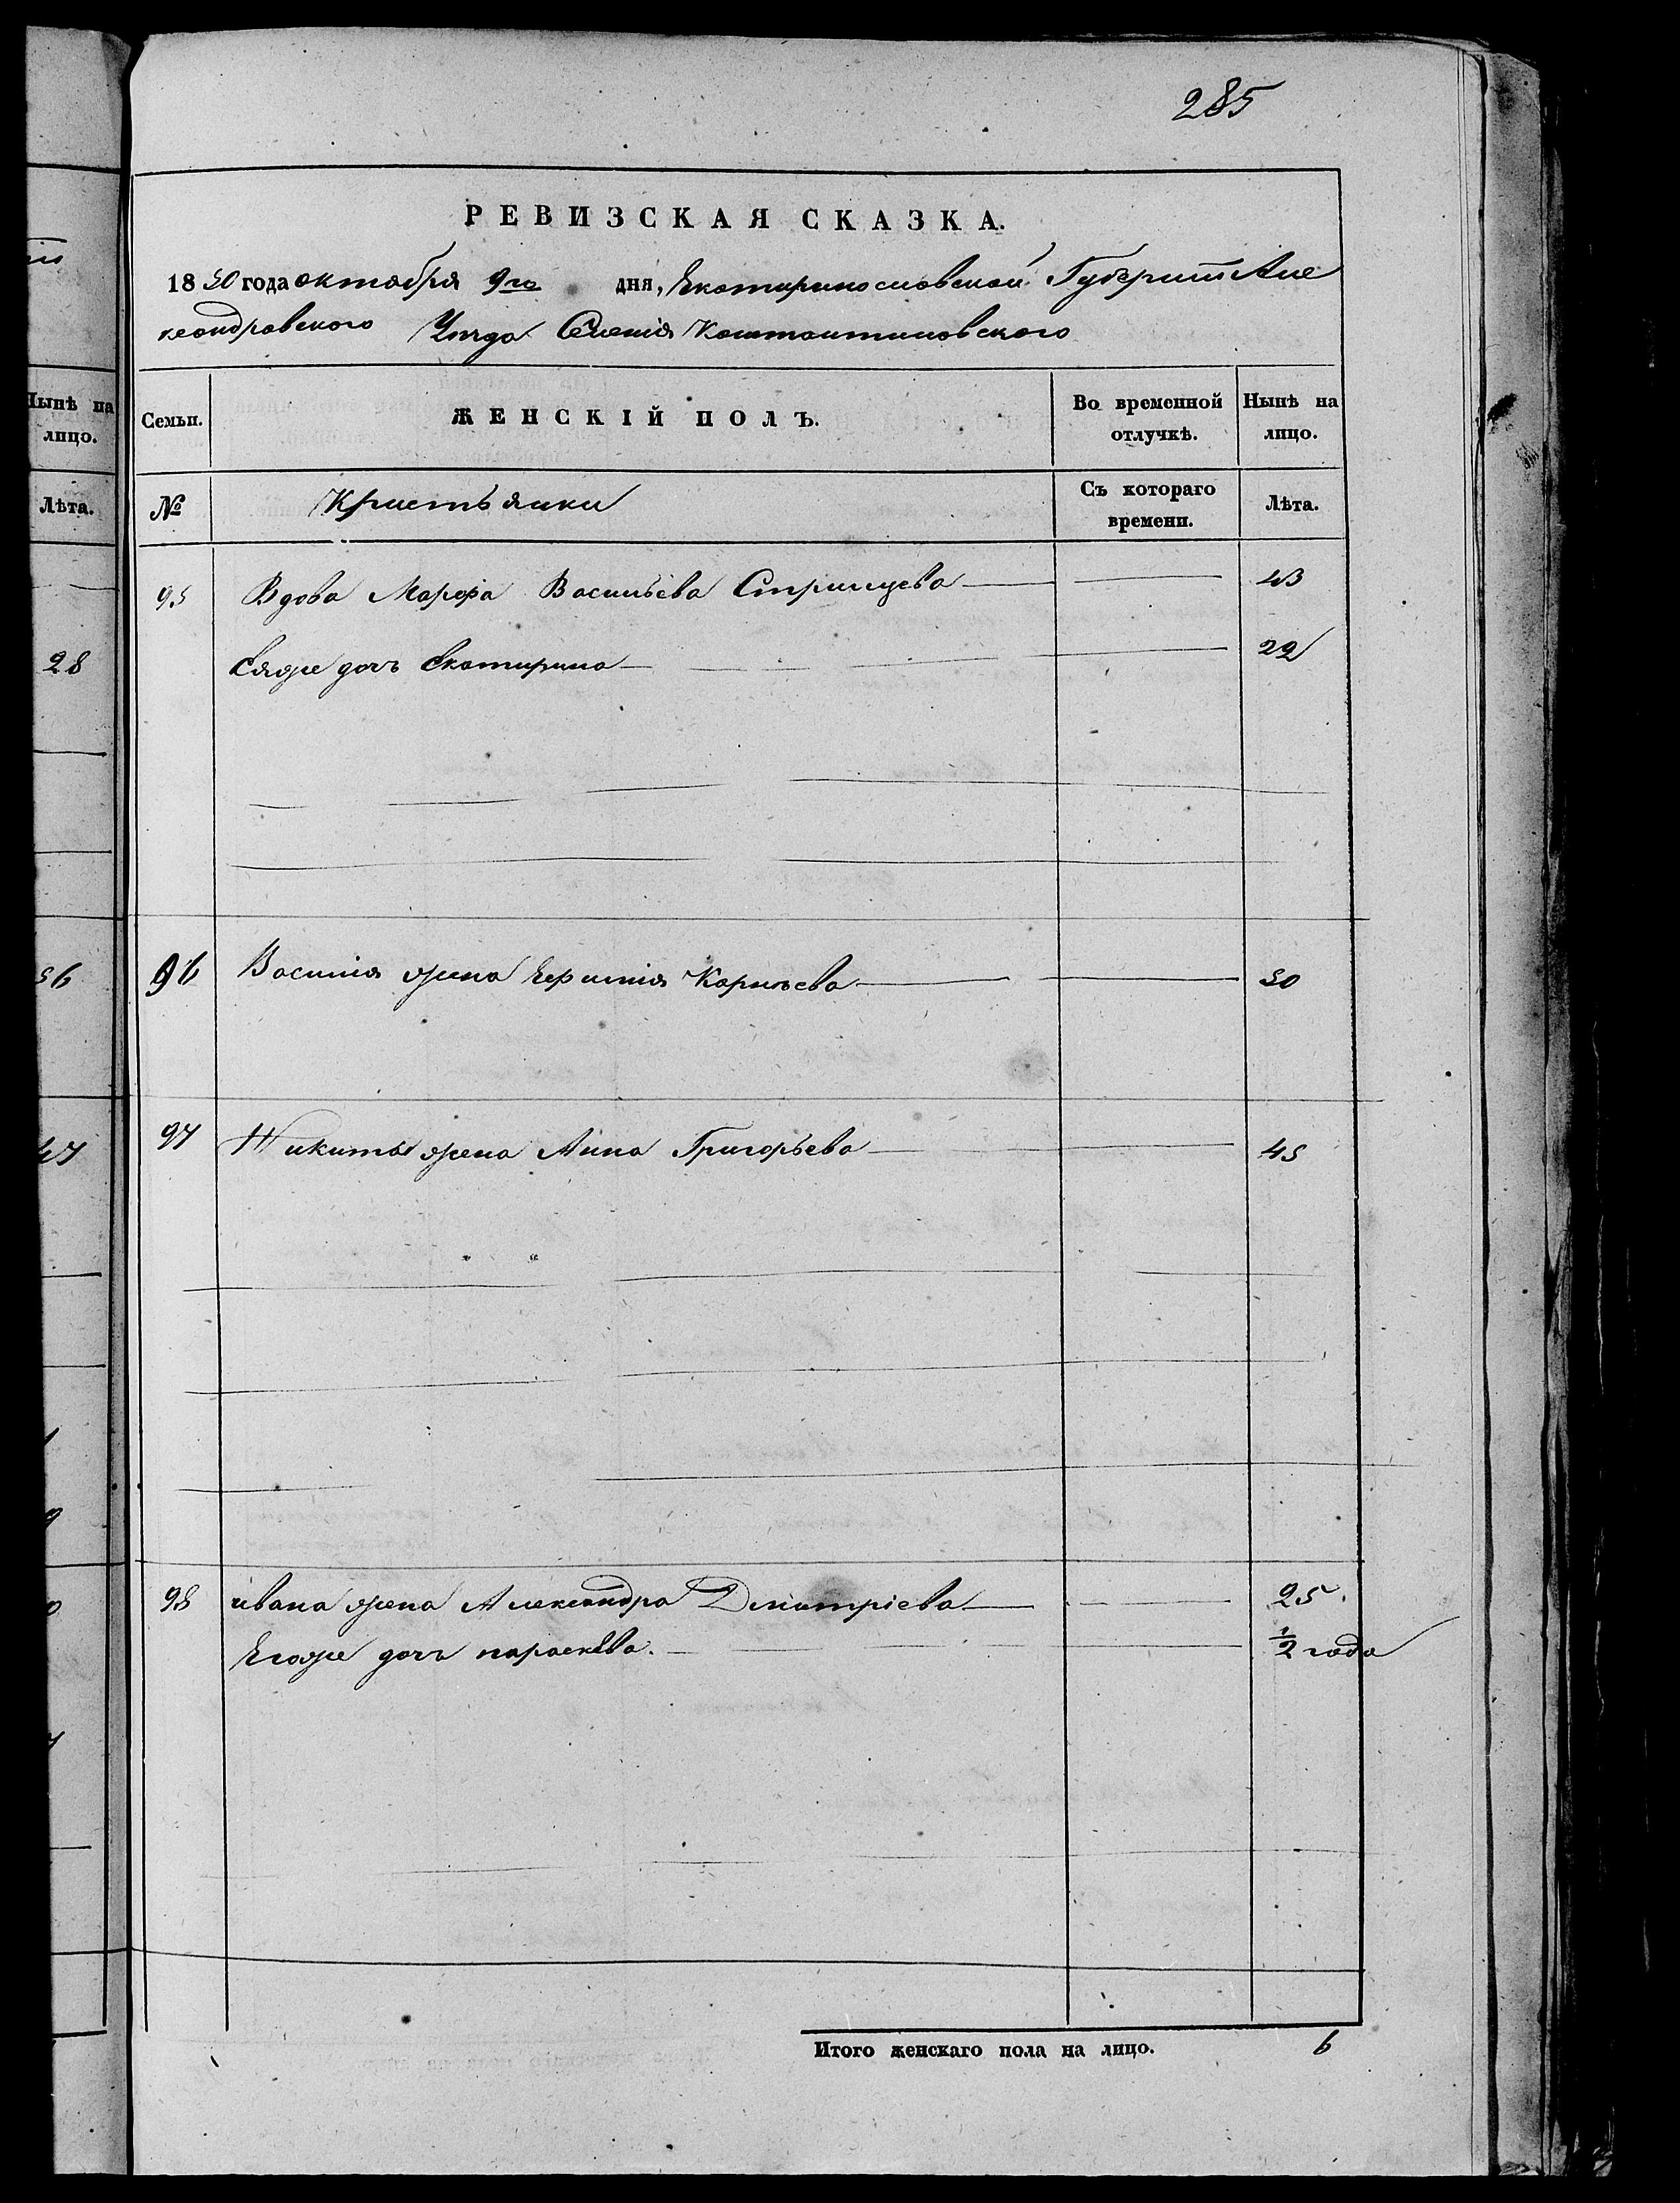 285
РЕВИЗСКАЯ СКАЗКА.
1850 года октября 9го дня, Екатеринославской Губернiи Але
ксандровского Уезда Селенiя Константиновского
Нынѣ на лицо.
Семьи.
ЖЕНСКІЙ ПОЛЪ.
Во временной отлучкѣ.
Нынѣ на лицо.
Лѣта.
№
Кристьянки
Съ котораго времени.
Лѣта.
95 Вдова Марфа Васильева Стрильцева 43
28
Еяже дочь Екатирина 22
56
96 Василия жена Ефимия Карпьева 50
47
97 Никиты жена Анна Григорьева 45
98 ивана жена Александра Дмитрiева 25
Егоже дочь параскева. 1/2 года
Итого женскаго пола на лицо. 6